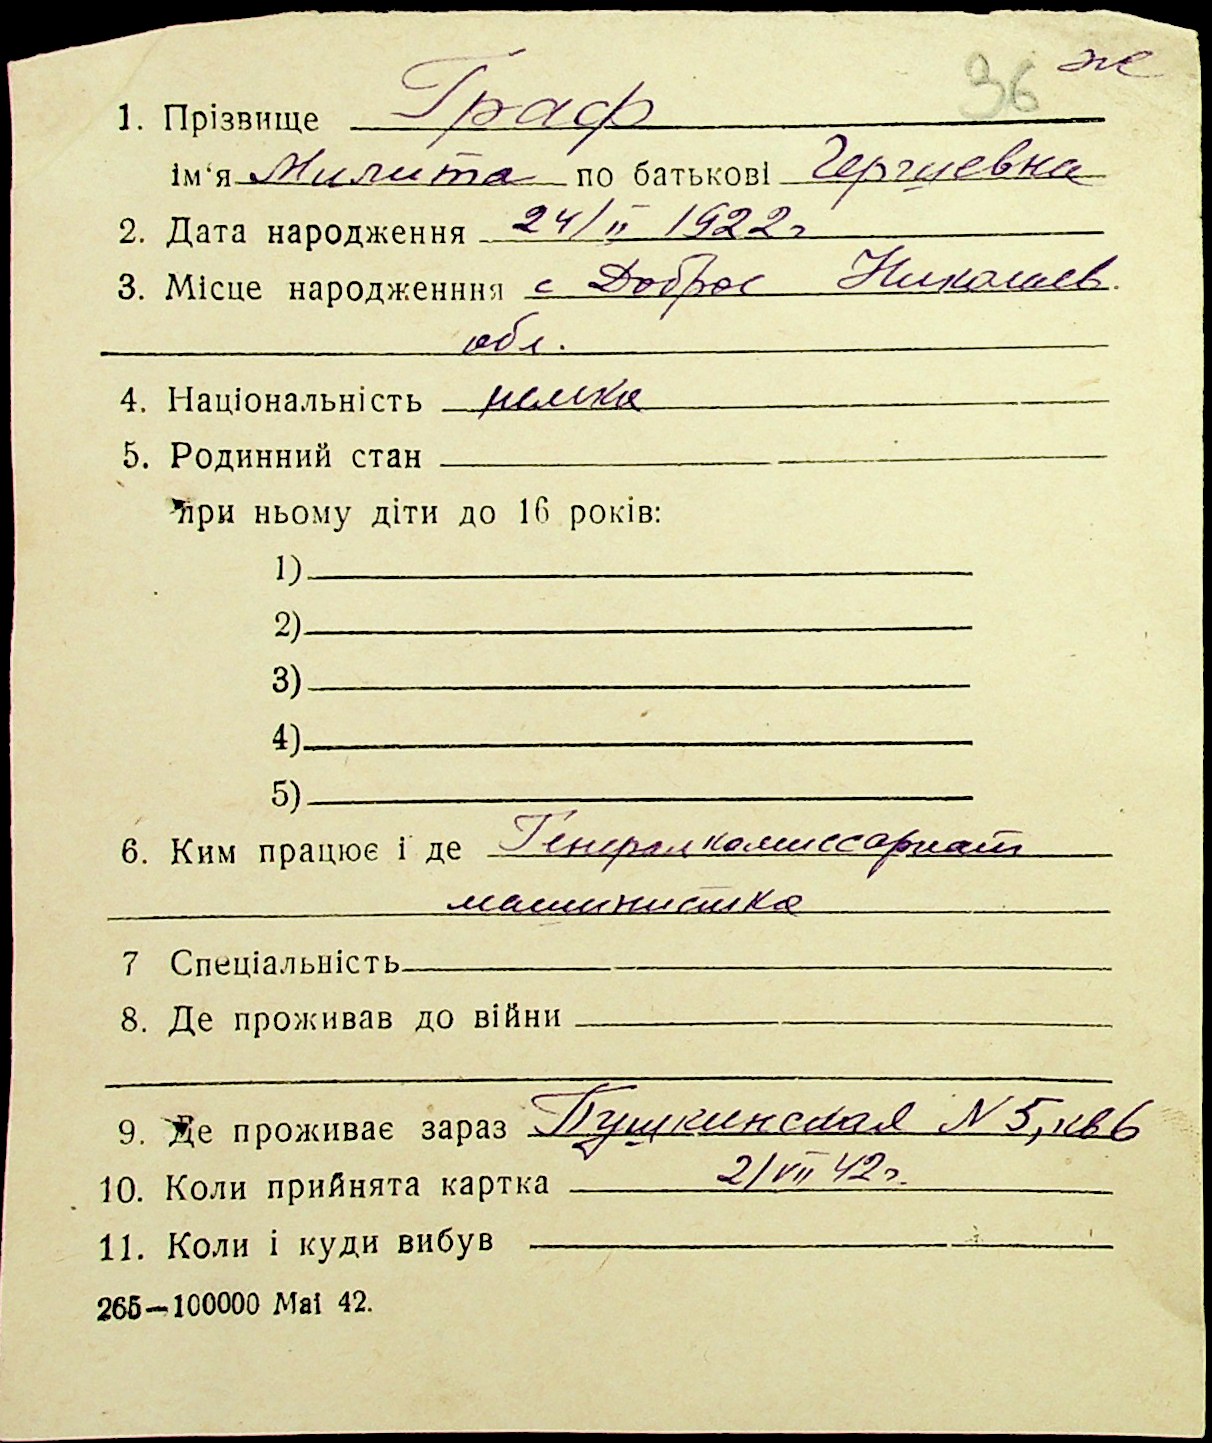 36 ж
1. Прізвище Граф
ім'я Милита по батькові Гергиевна
2. Дата народження 24/II 1922г
3. Місце народженння с Доброе Николаев.
обл.
4. Національність немка
5. Родинний стан
при ньому діти до 16 років:
1)
2)
3)
4)
5)
6. Ким працює і де Генералкомиссариат
машинистка
7 Спеціальність
8. Де проживав до війни
9. Де проживає зараз Пушкинская N 5, кв 6
10. Коли прийнята картка 2/VII 42г.
11. Коли і куди вибув
265—100000 Mai 42.